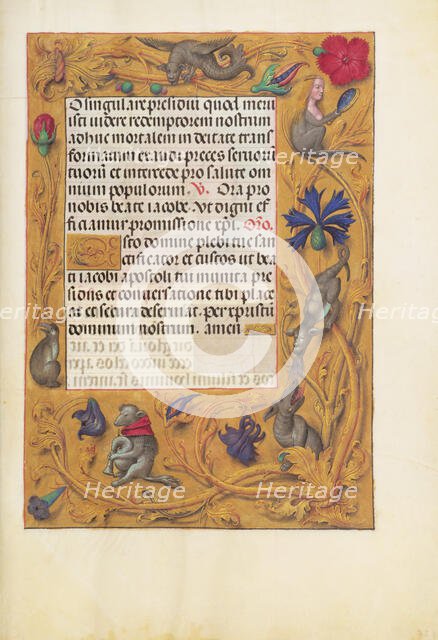 O singulare presidiū quod meru
isti videre redemptorem nostrum
adhuc mortalem in deitate trans
formatum exaudi preces servoru
tuorum et intercede pro salute om
nium populorum. V. Ora pro
nobis beate iacobe. Ut digni ef
ficiamur promissione xp̄i. Orō.
Esto domine plebi tue san
ctificator et custos ut bea
ti iacobi apostoli tui munita pre
sidiis et conversatione tibi place
at et secura deserviat. per xpristū
dominum nostrum. amen
Heritage
Images
Heritage
Images
Heritage
Images
Heritage
Images
C